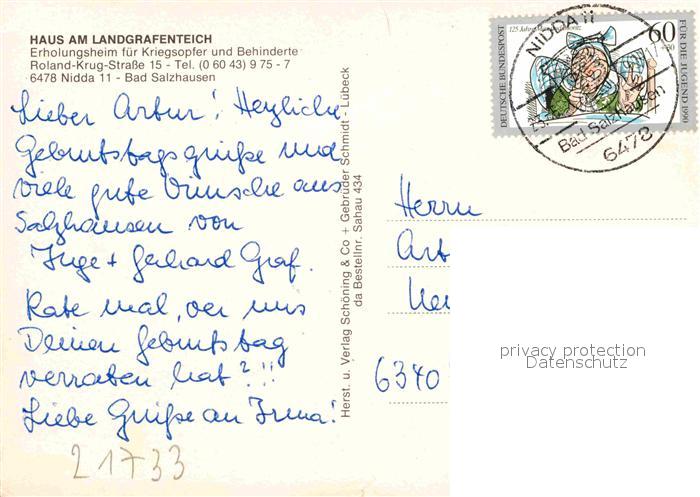 HAUS AM LANDGRAFENTEICH
Erholungsheim für Kriegsopfer und Behinderte
Roland-Krug-Straße 15 - Tel. (0 60 43) 9 75 - 7
6478 Nidda 11 - Bad Salzhausen
Lieber Artur! Herzliche
Geburtstagsgrüße und
viele gute Wünsche aus
Salzhausen von
Inge + Gerhard Graf.
Rate mal, wer uns
Deinen Geburtstag
verraten hat?!!
Liebe Grüße an Irma!
21733
Herst. u. Verlag Schöning & Co + Gebrüder Schmidt - Lübeck
da Bestellnr. Sahau 434
DEUTSCHE BUNDESPOST
125 Jahre Max und Moritz
60
+30
FÜR DIE JUGEND 1990
NIDDA 11
Bad Salzhausen
6478
Herrn
Art
6340
privacy protection
Datenschutz